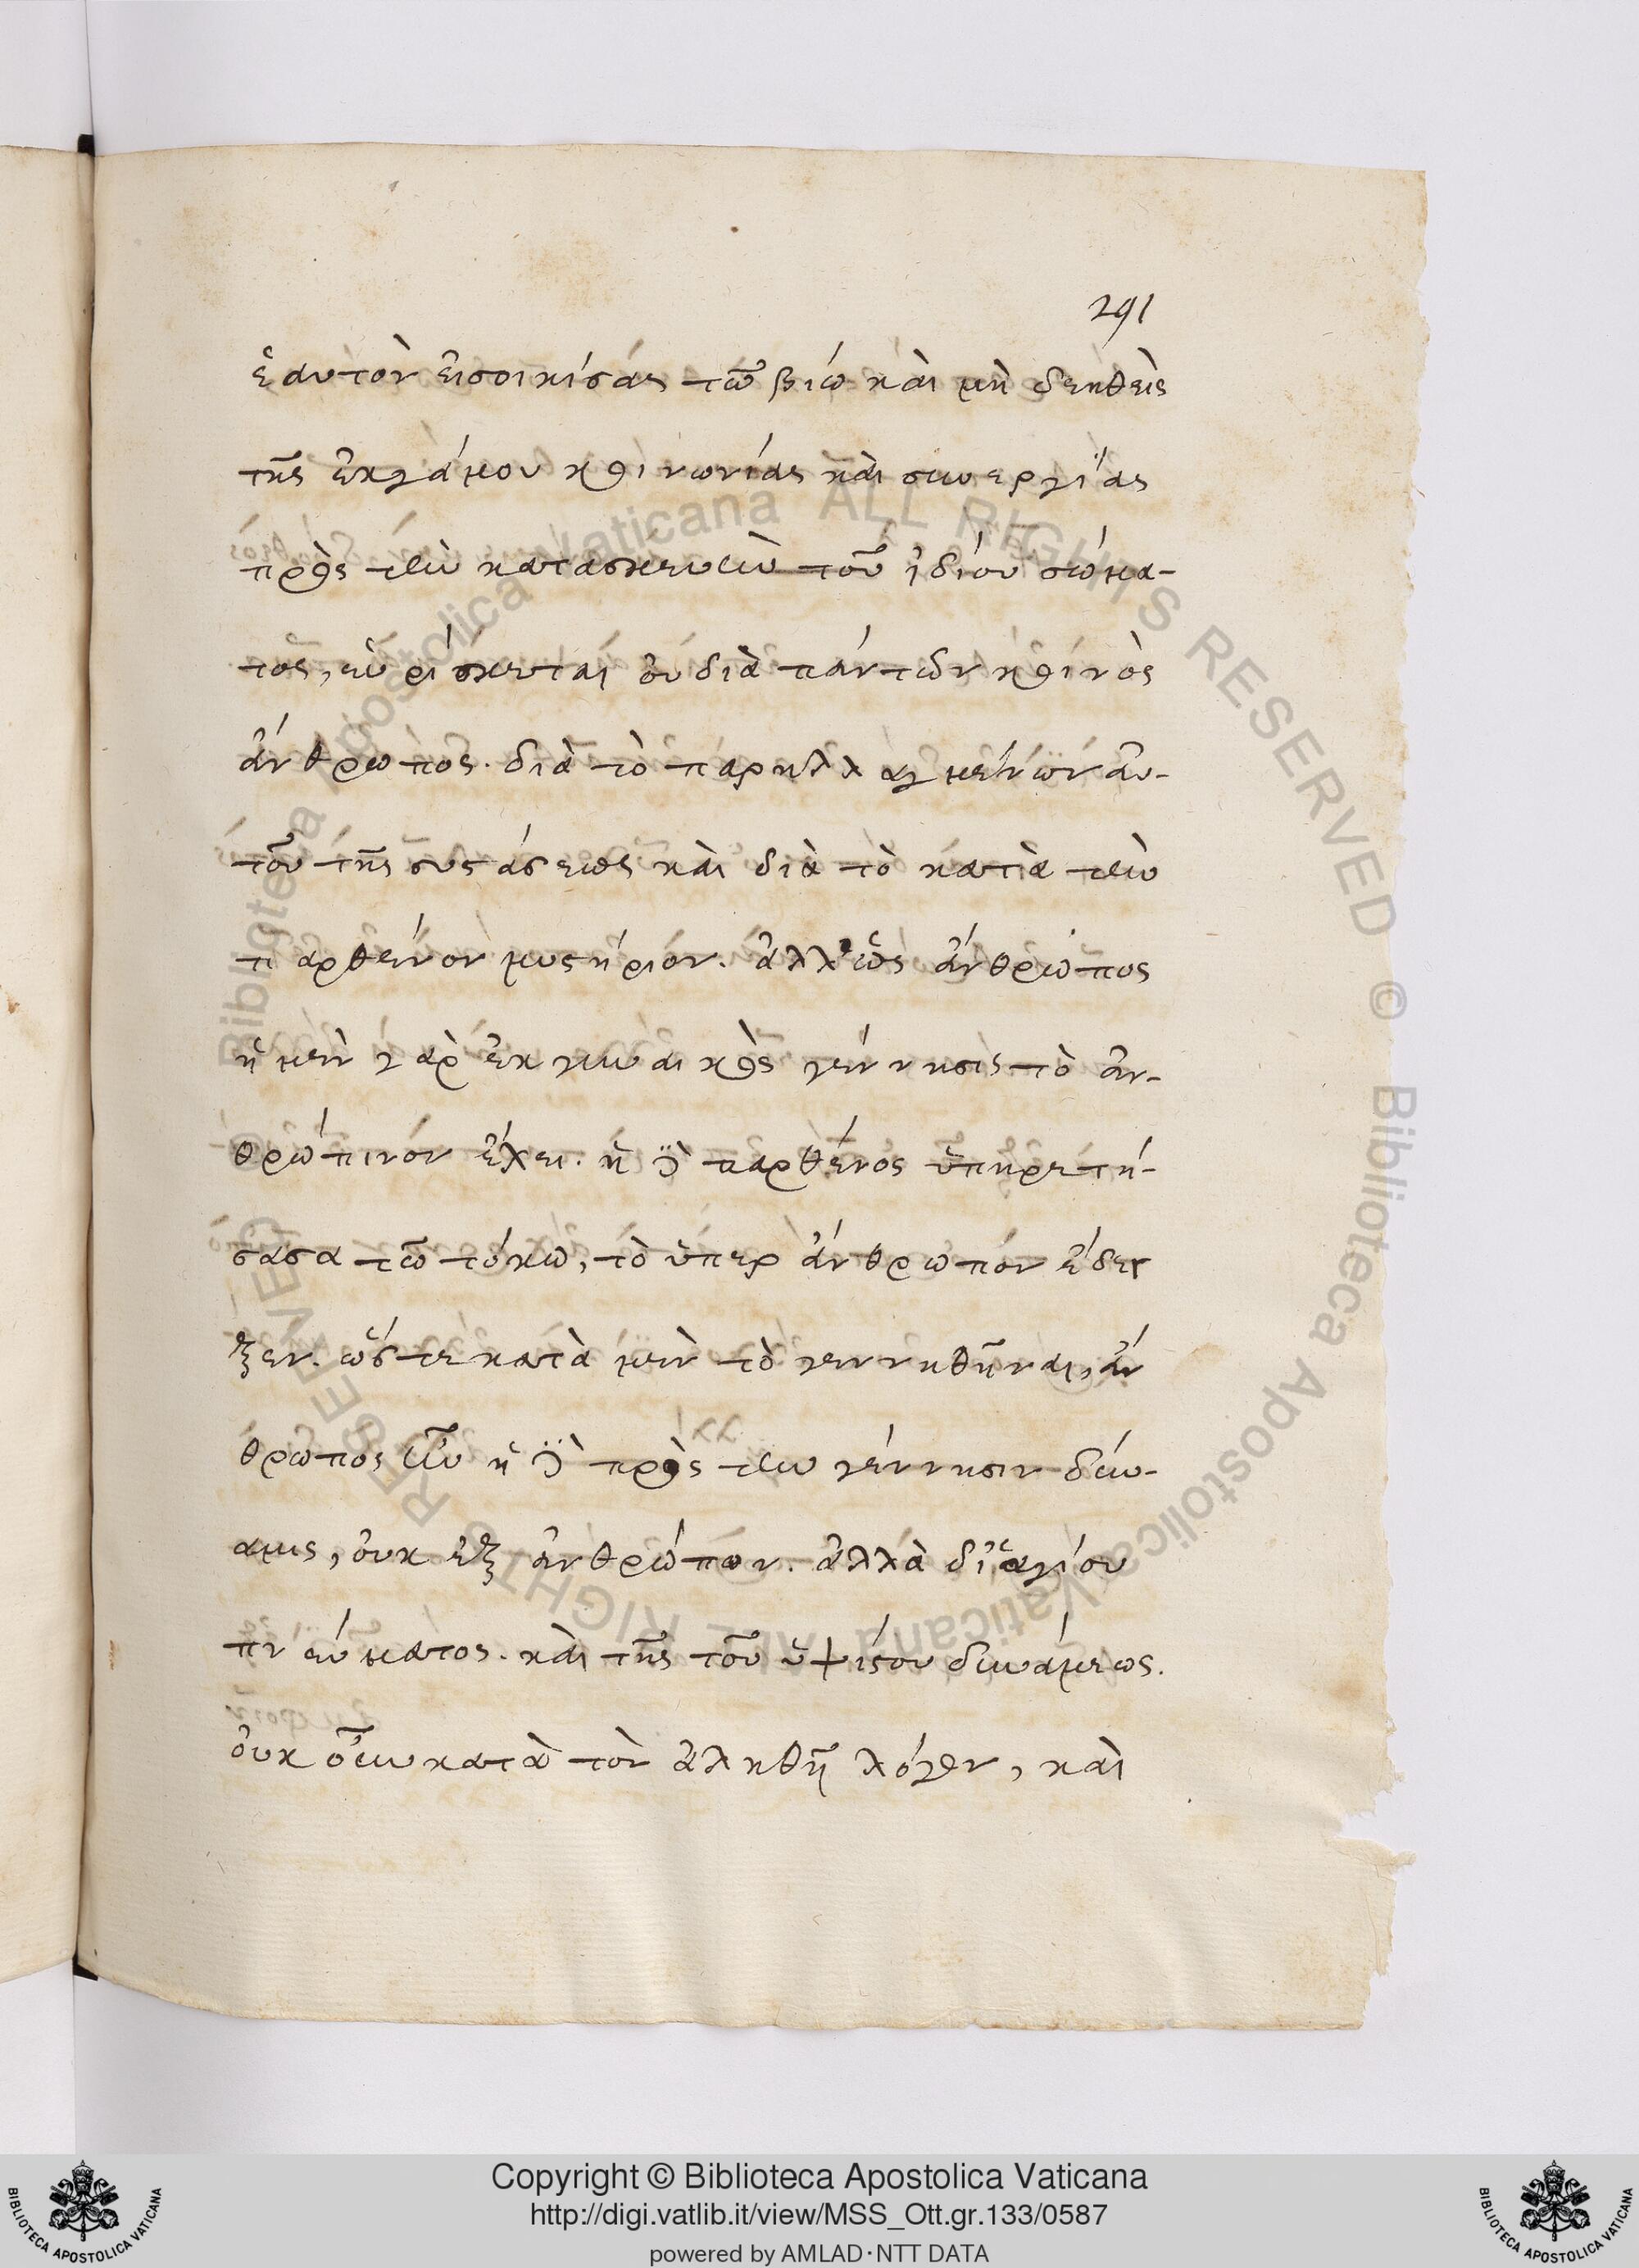 291
ἑαυτὸν εἰσοικίσας τῶ βίω καὶ μὴ δεηθεὶς
τῆς ἐκ γάμου κοινωνίας καὶ συνεργίας
πρὸς τὴν κατασκευὴν τοῦ ἰδίου σώμα-
τος, εὑρίσκεται οὐ διὰ πάντων κοινὸς
ἄνθρωπος. διὰ τὸ παρηλλαγμένων αὐ-
τοῦ τῆς συστάσεως καὶ διὰ τὸ κατὰ τὴν
παρθένον μυστήριον. ἀλλ' ὡς ἄνθρωπος
ἡ μὲν γὰρ ἐκ γυναικὸς γέννησις τὸ ἀν-
θρώπινον ἔχει. ἡ δὲ παρθένος ὑπηρετή-
σασα τῶ τόκω, τὸ ὑπερ ἄνθρωπον ἔδει
ξεν. ὥστε κατὰ μὲν τὸ γεννηθῆναι, ἄν
θρωπος ἦν ἡ δὲ πρὸς τὴν γέννησιν δύν-
αμις, οὐκ ἐξ ἀνθρώπων. ἀλλὰ δι' ἁγίου
πνεύματος. καὶ τῆς τοῦ ὑψίστου δυνάμεως.
οὐκ οὖν κατὰ τὸν ἀληθῆ λόγον, καὶ
Copyright © Biblioteca Apostolica Vaticana
http://digi.vatlib.it/view/MSS_Ott.gr.133/0587
powered by AMLAD·NTT DATA
BIBLIOTECA APOSTOLICA VATICANA
BIBLIOTECA APOSTOLICA VATICANA